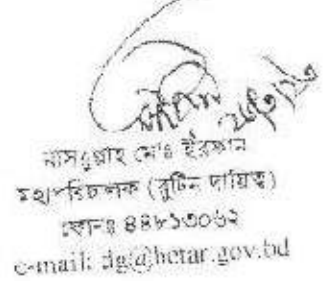 নাসরুল্লাহ মোঃ ইরফান
মহাপরিচালক (রুটিন দায়িত্ব)
ফোনঃ ৪৪৮১৩০৬২
e-mail: dg@betar.gov.bd